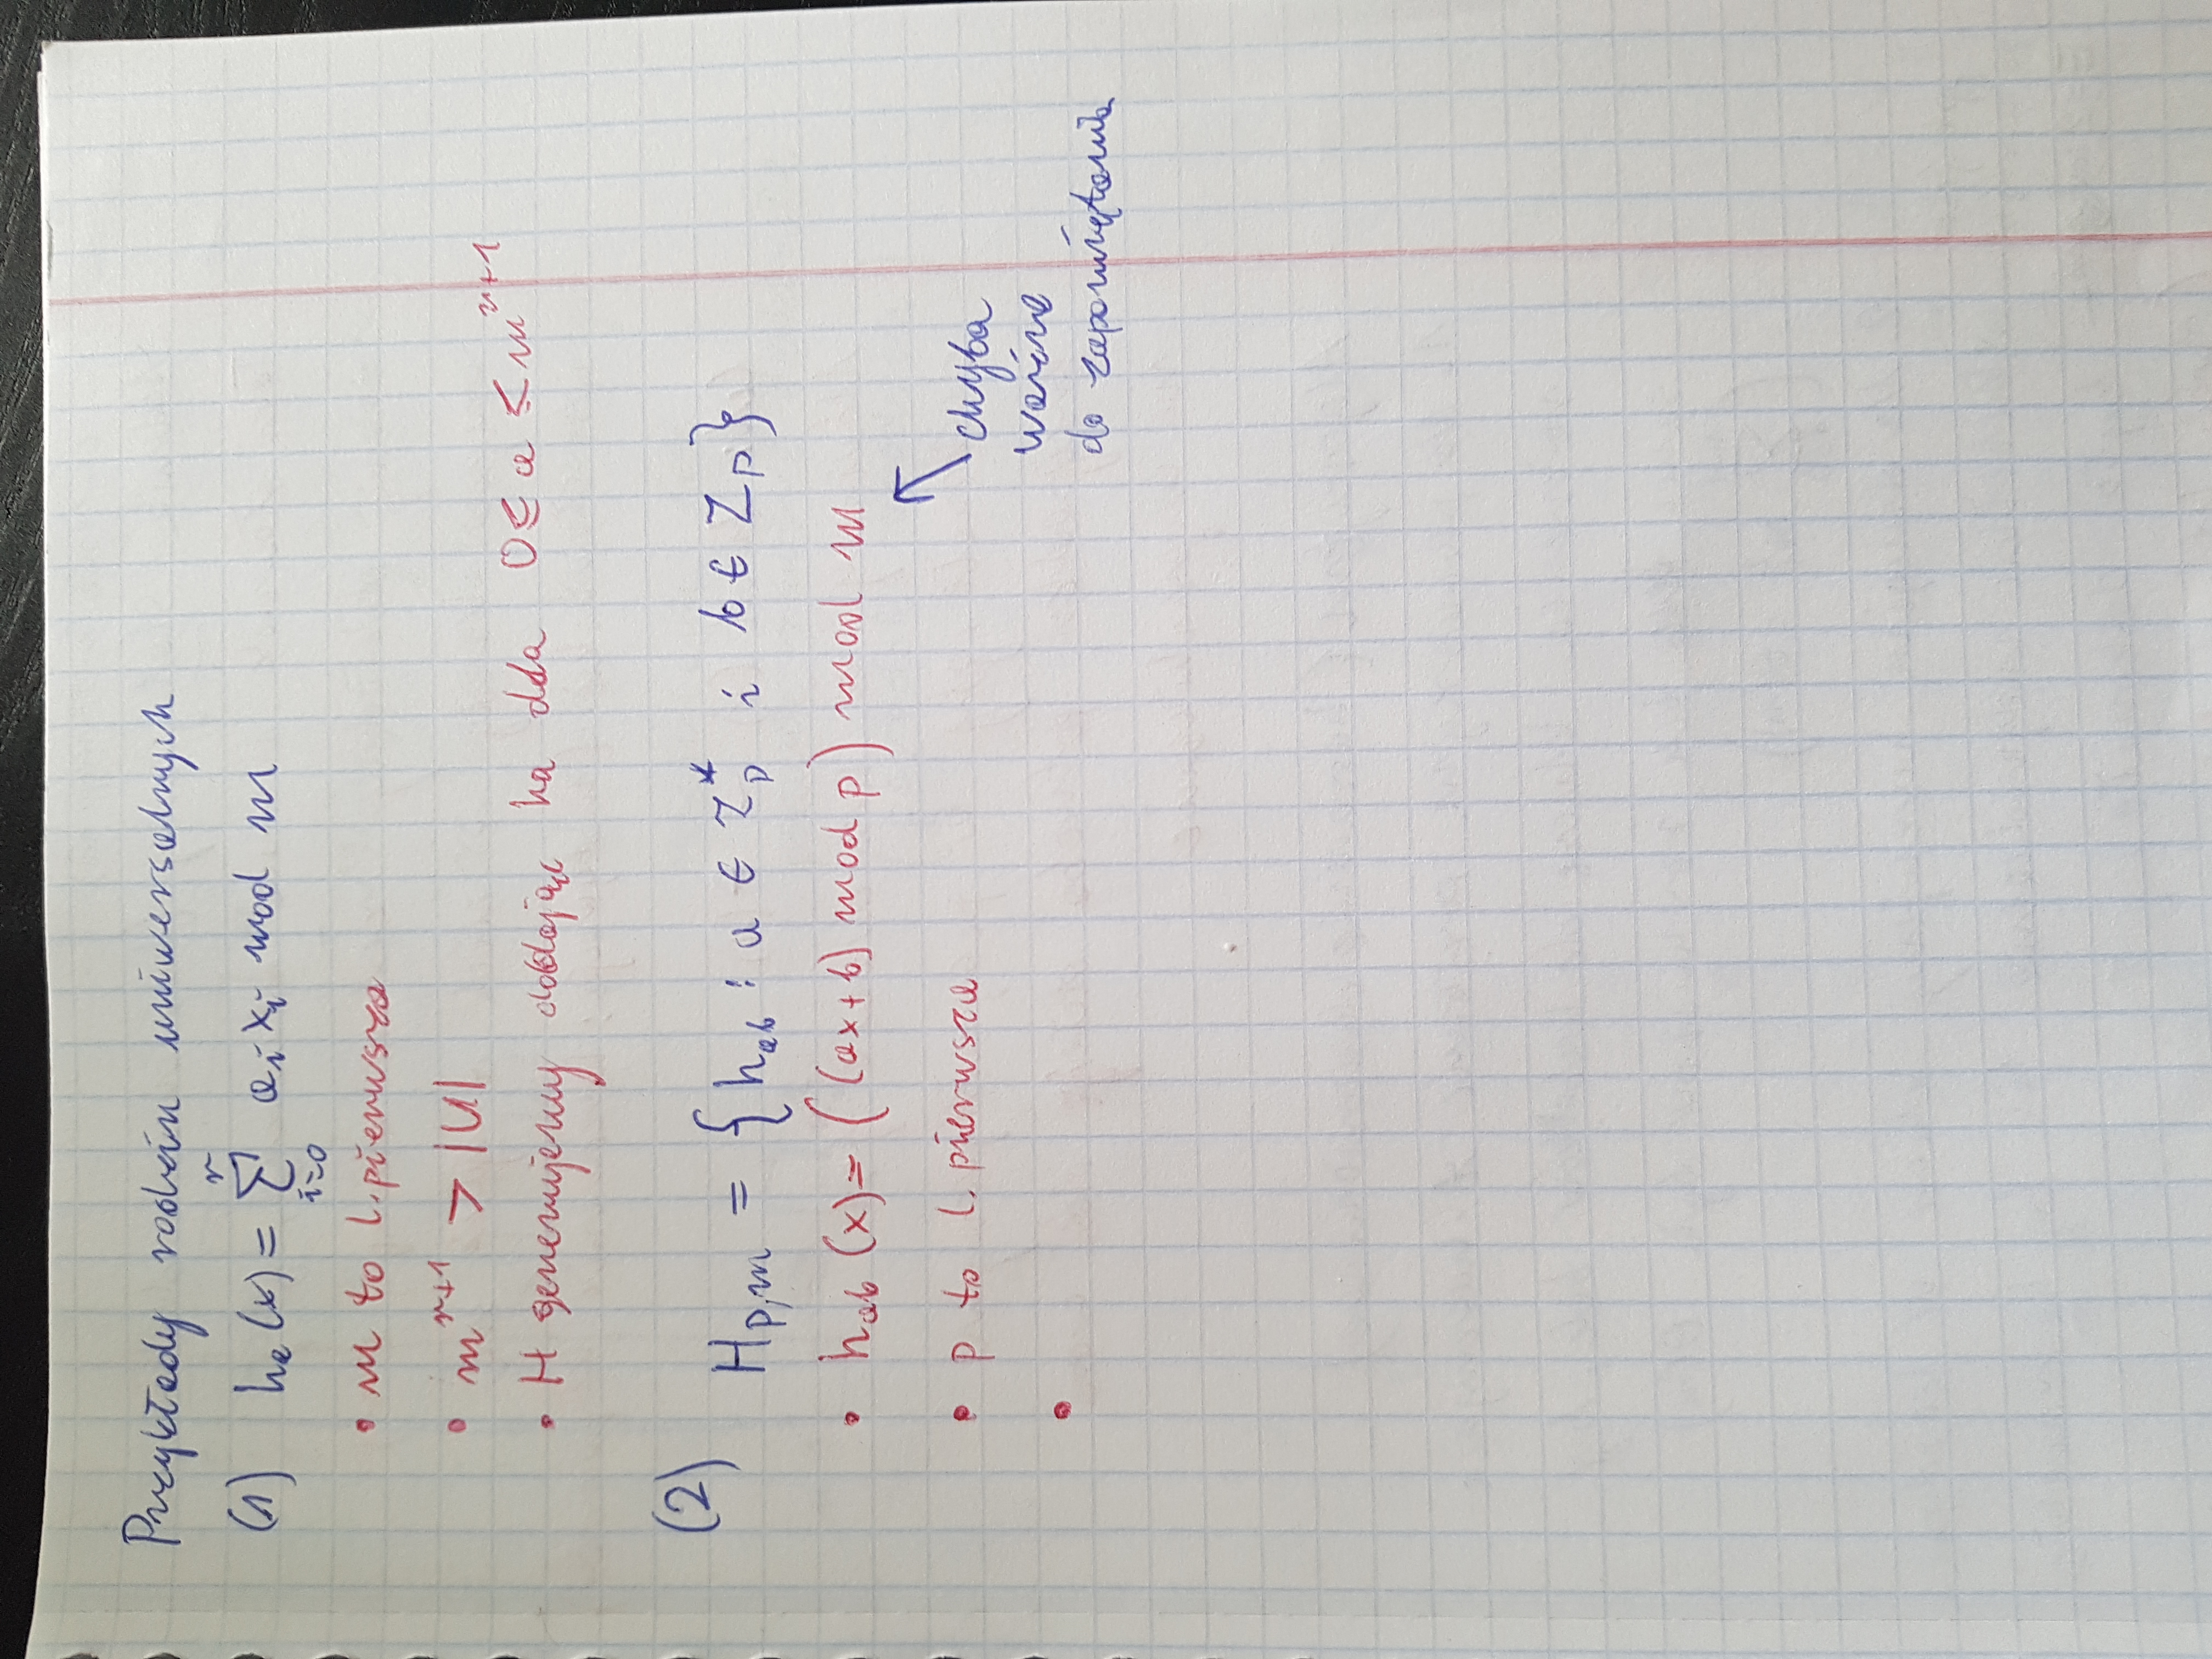 Przykłady rodzin uniwersalnych
(1) hₐ(x) = ∑ᵢ₌₀ʳ aᵢxᵢ mod m
• m to l. pierwsza
• mʳ⁺¹ > |U|
• H generujemy dodając ha dla 0 ≤ a < mʳ⁺¹
(2) H_p,m = {h_ab : a ∈ Z_p* i b ∈ Z_p}
• h_ab (x) = ((ax + b) mod p) mod m
• p to l. pierwsza
•
chyba
ważne
do zapamiętania